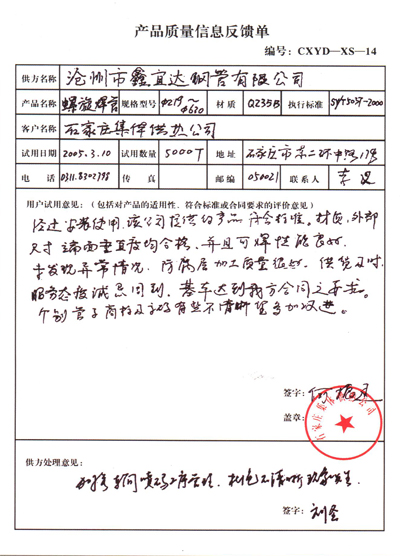 产品质量信息反馈单
编号：CXYD—XS—14
供方名称 沧州市鑫宜达钢管有限公司
产品名称 螺旋焊管 规格型号 Φ219～Φ630 材质 Q235B 执行标准 SY/T5037-2000
客户名称 石家庄集焊供热公司
试用日期 2005.3.10 试用数量 5000T 地址 石家庄市东二环中路11号
电话 0311.8302798 传真 邮编 050021 联系人 李
用户试用意见：（包括对产品的适用性、符合标准或合同要求的评价意见）
经过安装使用，该公司提供的产品符合标准。材质、外部
尺寸端面垂直度均合格，并且可焊性能良好，
未发现异常情况，防腐层加工质量很好，供货及时，
服务态度诚恳周到，基本达到我方合同之要求。
个别管子商标及字码有些不清晰望多加改进。
签字：何振
盖章：
供方处理意见：
签字：刘